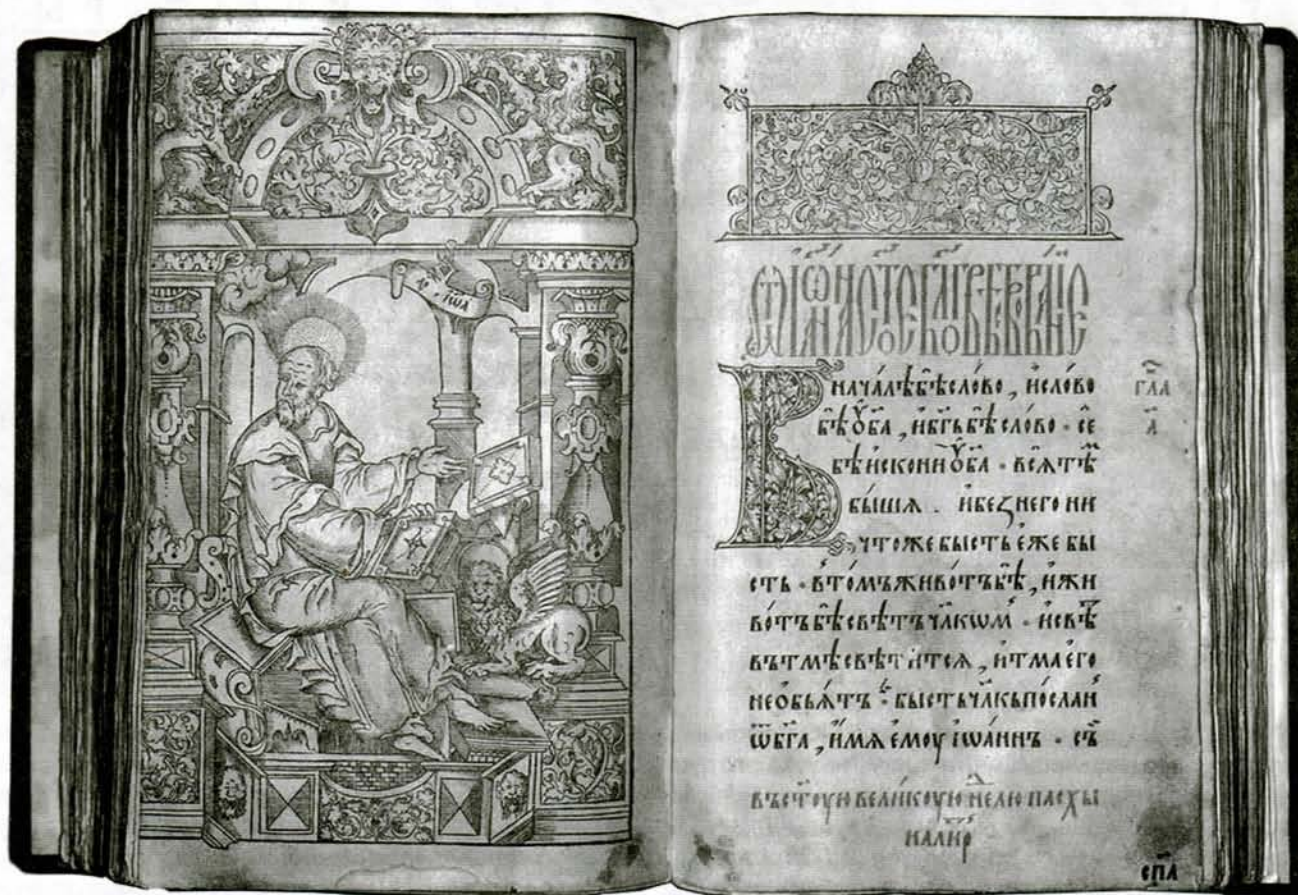 І҆ѡа
ѿ іѡанна ст҃ое бл҃говѣствованіе
начáлѣбѣ̀слóво , и҆слóво
бѣ̀ ᲂу҆б҃а , и҆бг҃ъбѣ̀ слóво · се
бѣ̀ и҆сконнѝ ᲂу҆б҃а · всѧ̑тѣⷨ
бы́шѧ . и҆без̾негѡ ни
чтоже бысть є҆же бы
сть · в̾томъ живо́тъ бѣ̀ , и҆жи
во́тъ бѣ̀ свѣ́тъ чл҃кѡм · и҆свѣⷮ
въ тмѣ̀ свѣ́титсѧ , и҆ тма є҆го
не ѡб̾ѧ́тъ · бысть чл҃къ посла́н
ѿ бг҃а , и҆мѧ є҆моу і҆ѡа́ннъ · съ
гл҃а
а҃
въ ст҃оую великоую неⷣлю пасхы
на лиⷮр
сп҃а